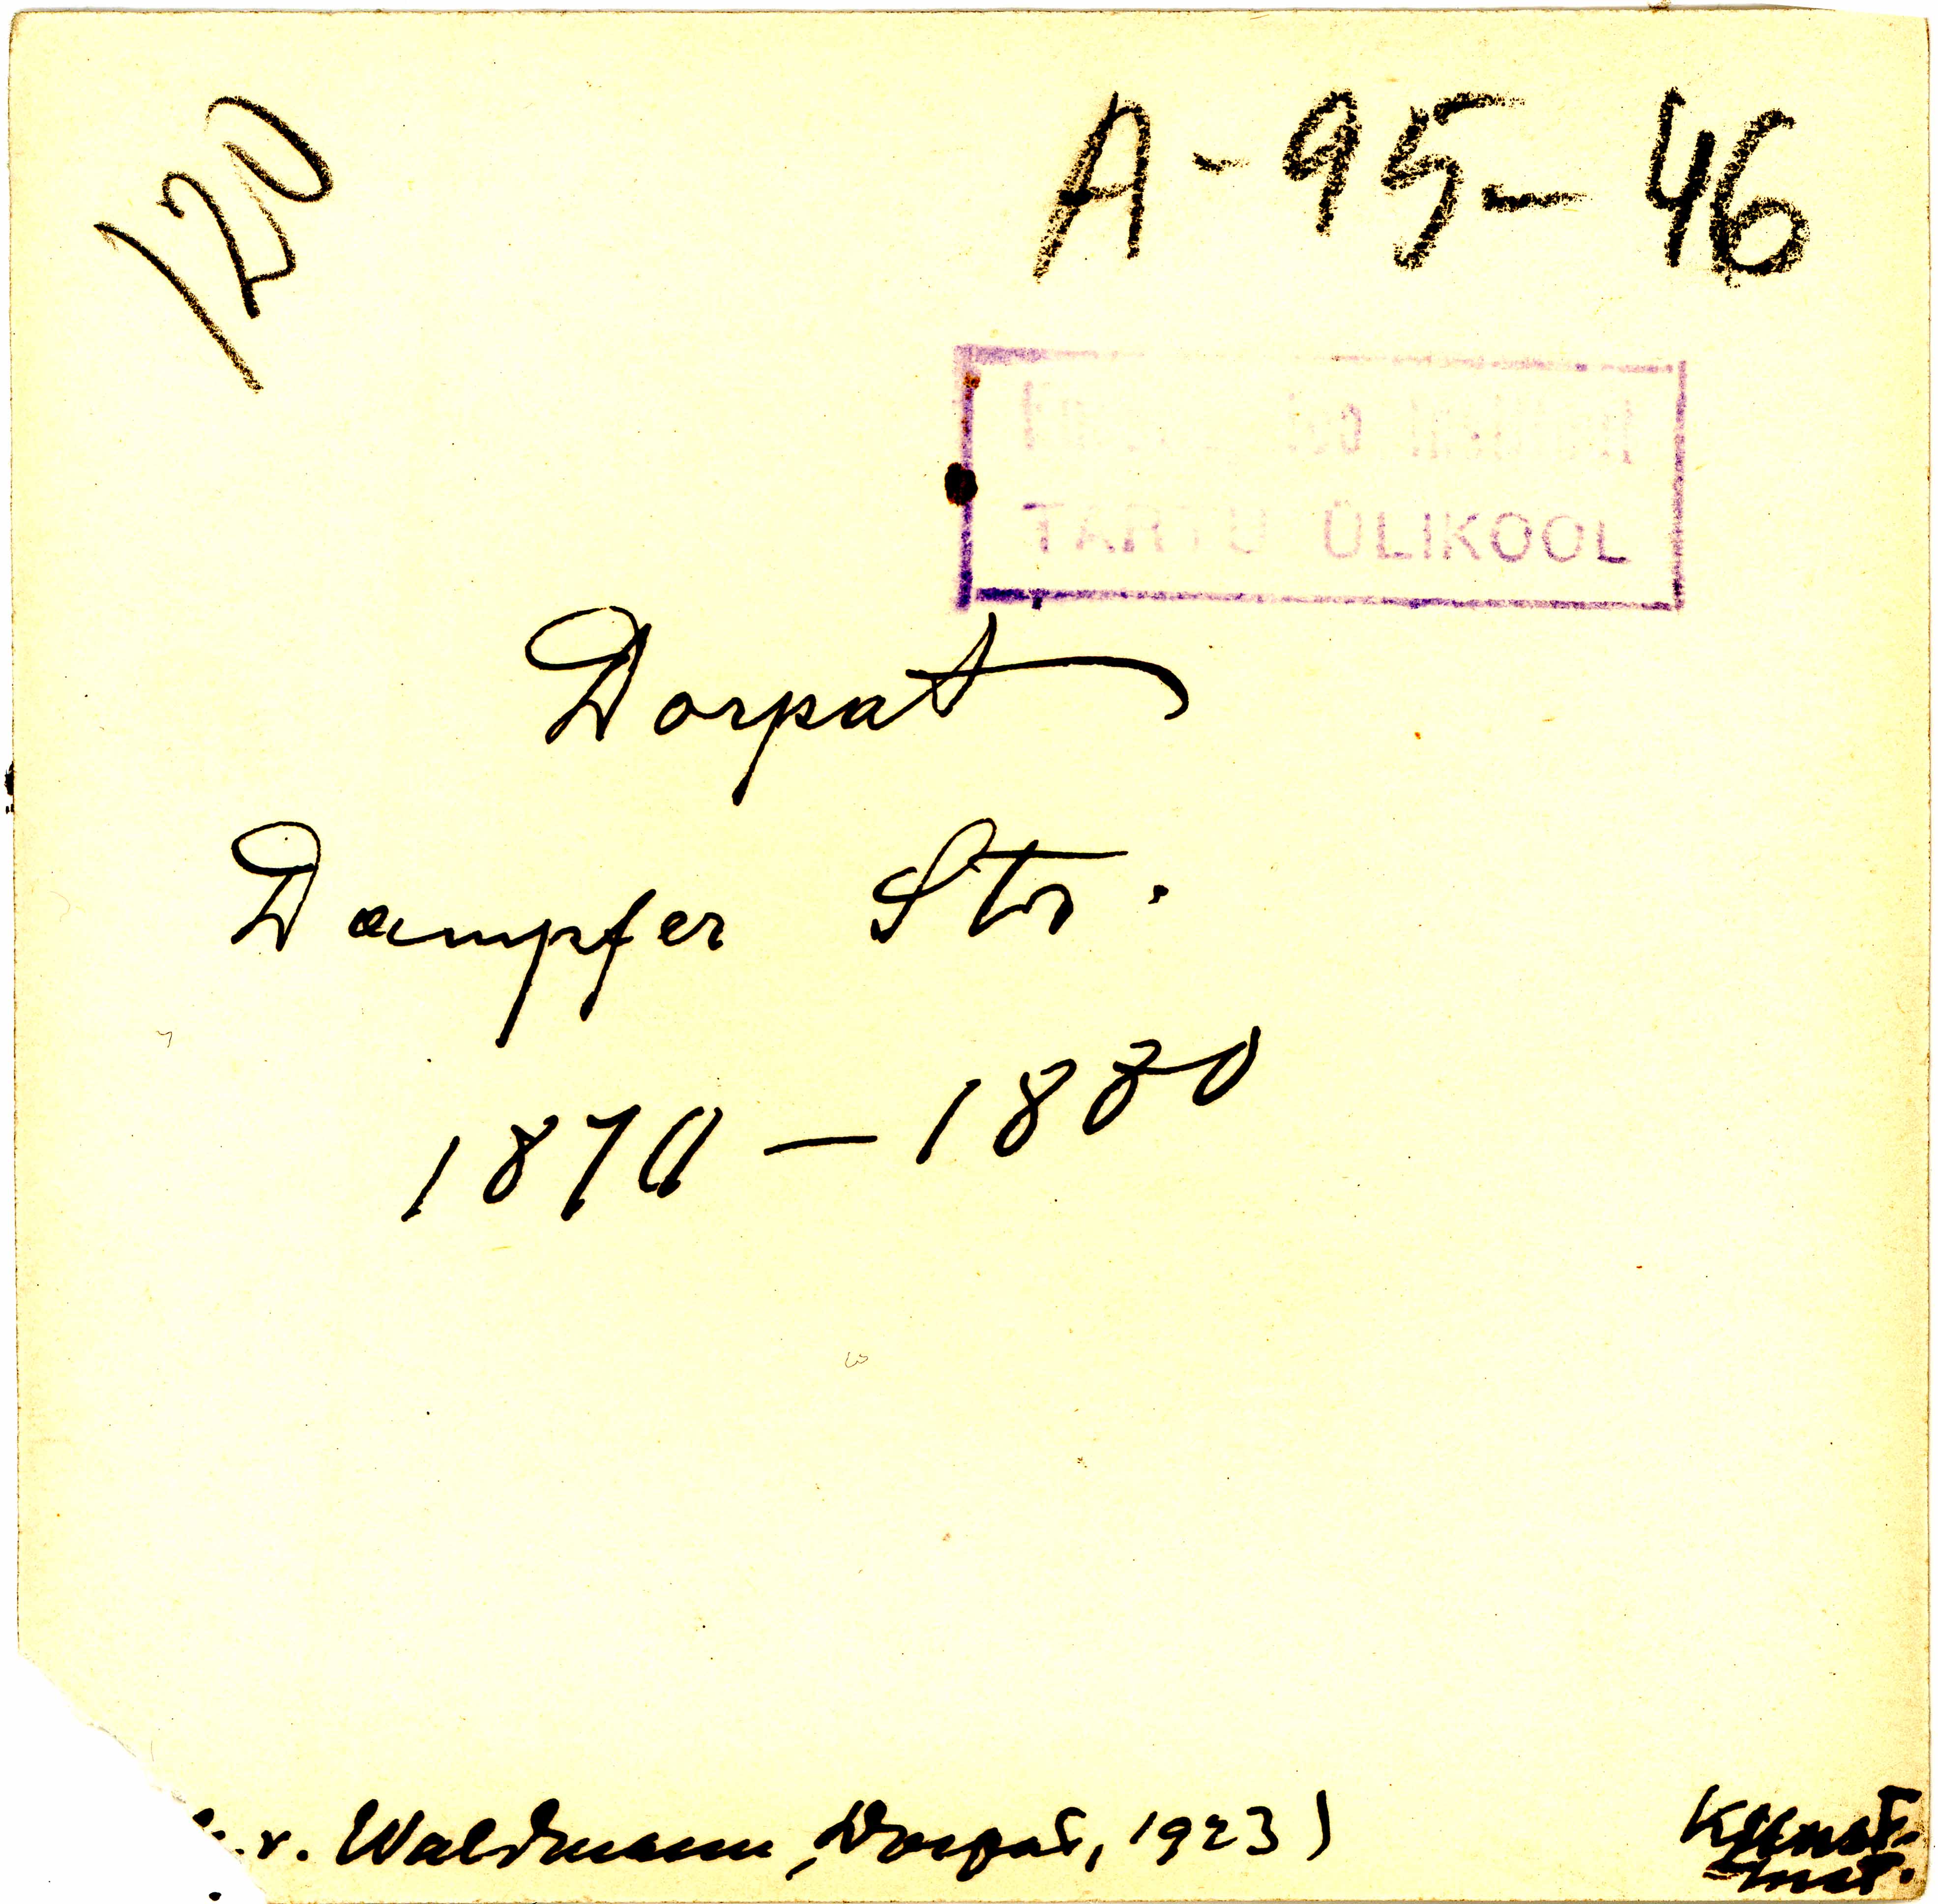 120
A-95-46
TARTU ÜLIKOOL
Dorpat
Dampfer Str.
1870 — 1880
v. Waldmann, Dorpat, 1923)
Kunst.
Inst.